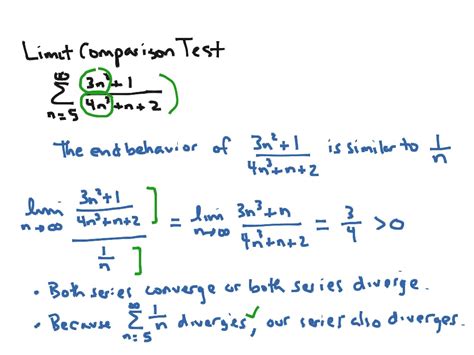 Limit Comparison Test
∞ ∑ n=5 (3n²+1)/(4n³+n+2)
The end behavior of (3n²+1)/(4n³+n+2) is similar to 1/n
lim n→∞ [(3n²+1)/(4n³+n+2)]/[1/n] = lim n→∞ (3n³+n)/(4n³+n+2) = 3/4 >0
• Both series converge or both series diverge.
• Because ∞ ∑ n=5 1/n diverges, our series also diverges.